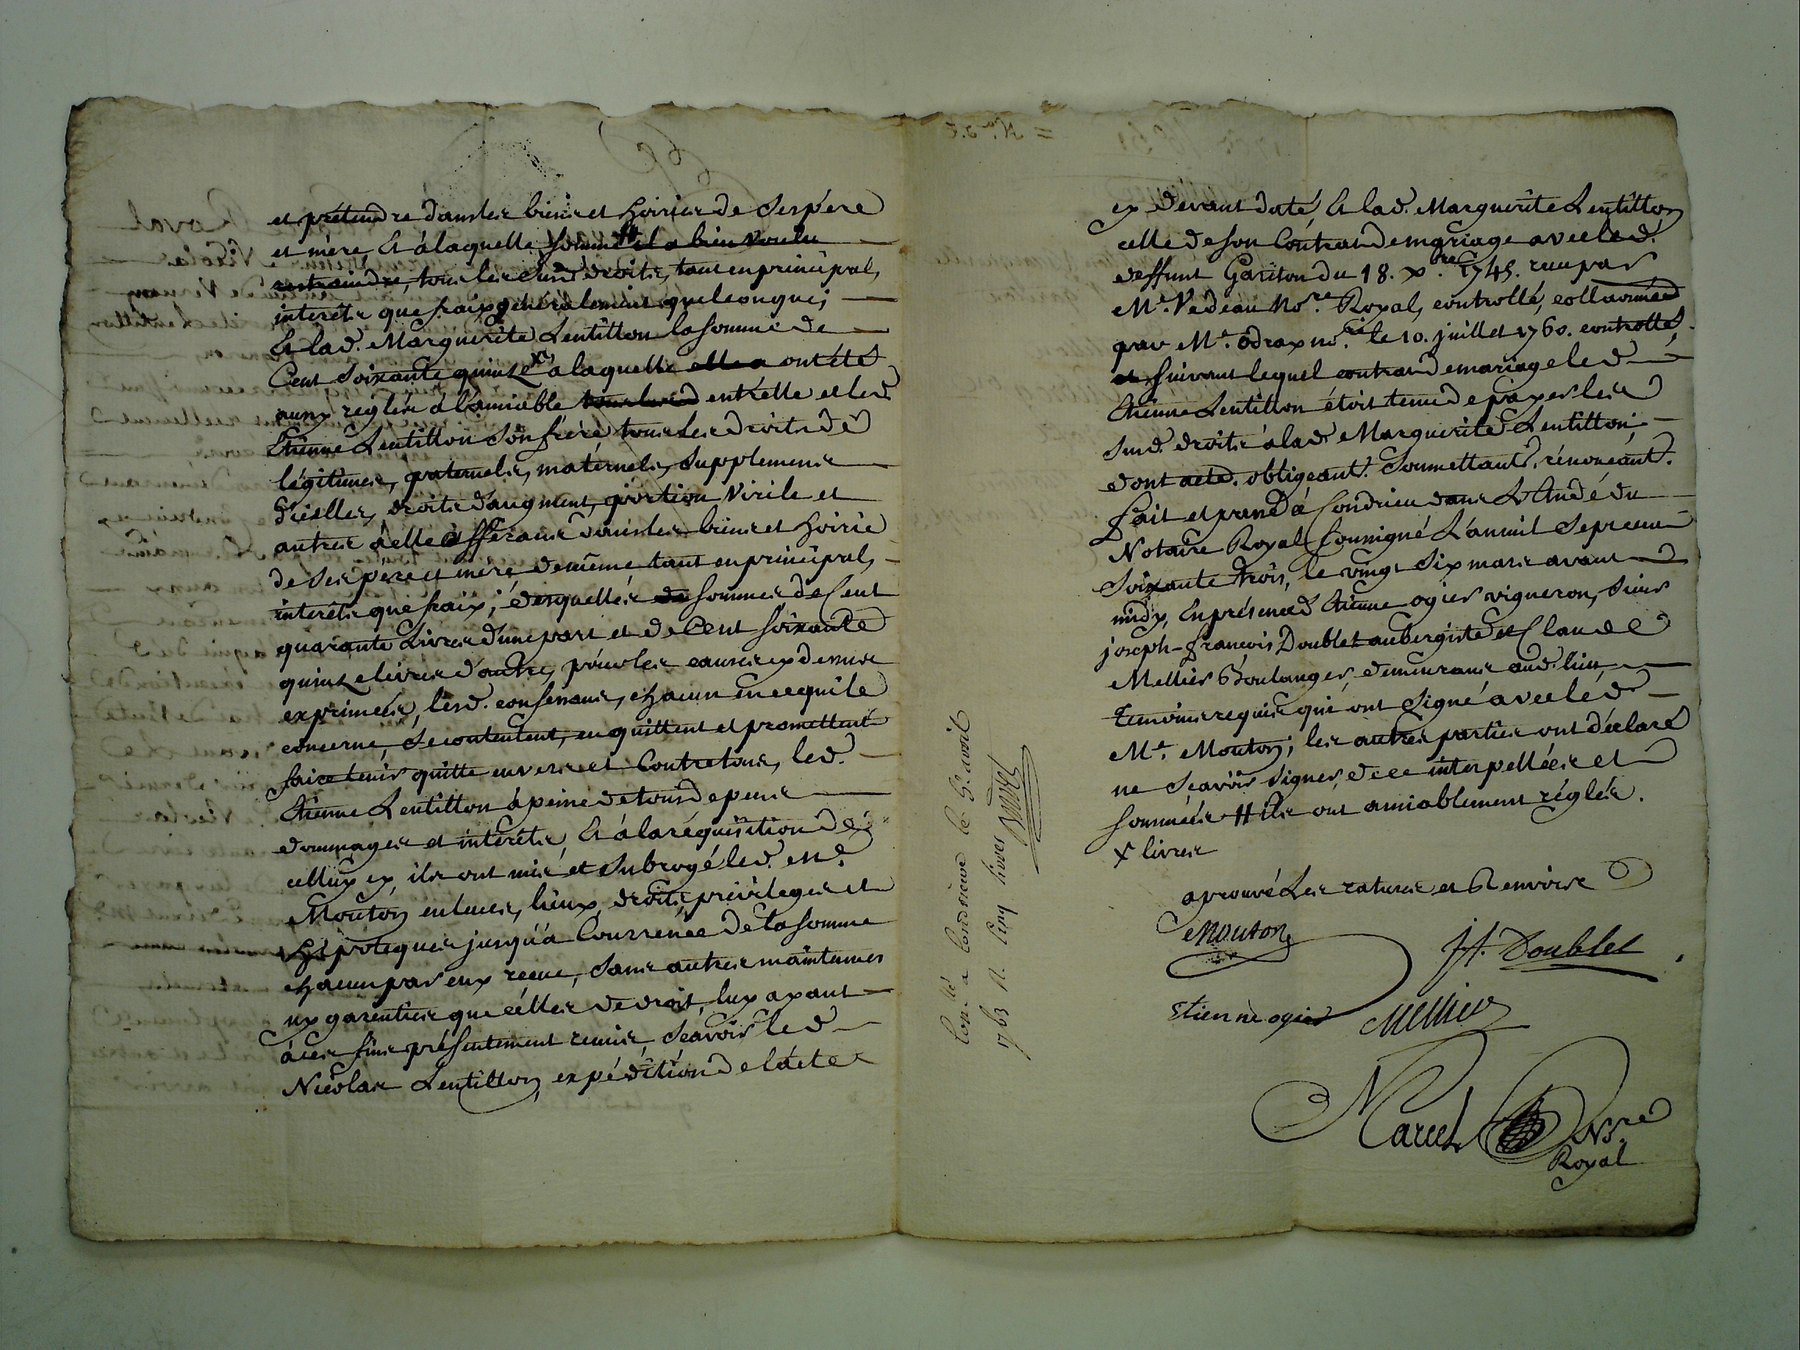 et prétendre dans les biens et hoiries de ses père
et mère, Et à laquelle somme # il a bien voulu
restraindre, tous les susd. droits, tant en principal,
interêts que fraix généralement quelconques;
Et lad. Marguerite Lentillon la somme de
Cent soixante quinze x à laquelle elle a ont été
aussy reglés à l'amiable entr'elle et led.
Etienne Lentillon son frère tous les droits de
légitimes, paternels, maternels, supplements
d'icelles, droits d'augment, portion virile et
autres à elle afférants dans les biens et hoirie
de ses père et mère, de même tant en principal,
interêts que fraix; desquelles sommes de Cent
quarante Livres d'une part et de Cent soixante
quinze livres d'autre, pour les causes cy dessus
exprimées, lesd. confessants, chacun en ce qui le
concerne, se contentent, en quittent et promettent
faire tenir quitte envers et contre tous, led.
Etienne Lentillon à peine de tous depens
dommages et interêts, Et à la réquisition de
celluy cy ils ont mis et subrogé led. Me.
Mouton en leurs, lieux, droits, privileges et
hipoteques jusqu'à Courrence de la somme
chacun par eux reçue, sans autres maintenues
ny garenties que celles de droit, luy ayant
à ces fins présentement remis, sçavoir led.
Nicolas Lentillon, expédition de l'acte
cy devant daté, Et lad. Marguerite Lentillon
celle de son Contrat de mariage avec led.
deffunt Gariton du 18. xbre 1745. reçu par
Me. Vedeau Nore. Royal, controllé, collationnée
par Me. Odrax nore. le 10. juillet 1760. controllé,
et suivant lequel contrat de mariage led.
Etienne Lentillon étoit tenu de payer les
susd. droits à lad. Marguerite Lentillon;
dont acte. obligeant. Soumettant. rénonçant.
fait et passé à Condrieu dans L'Etude du
Notaire Royal soussigné L'an mil sept cent
soixante trois, le vingt six mars avant
midy, En présence d'Etienne ogier vigneron, sieur
joseph-françois Doublet aubergiste et Claude
Mellier Boulanger, demeurants aud. lieu
temoins requis qui ont signé avec led.
Me. Mouton; les autres parties ont déclaré
ne sçavoir signer, de ce interpellées et
sommées # ils ont amiablement réglés.
x livres
aprouvé Les ratures et Renvois
Mouton
Jf. Doublet
Etienne ogier
Mellier
Marcel Nore
Royal
Conté à Condrieu le 5e. avril
1763 R. Cinq livres
= No. 2.